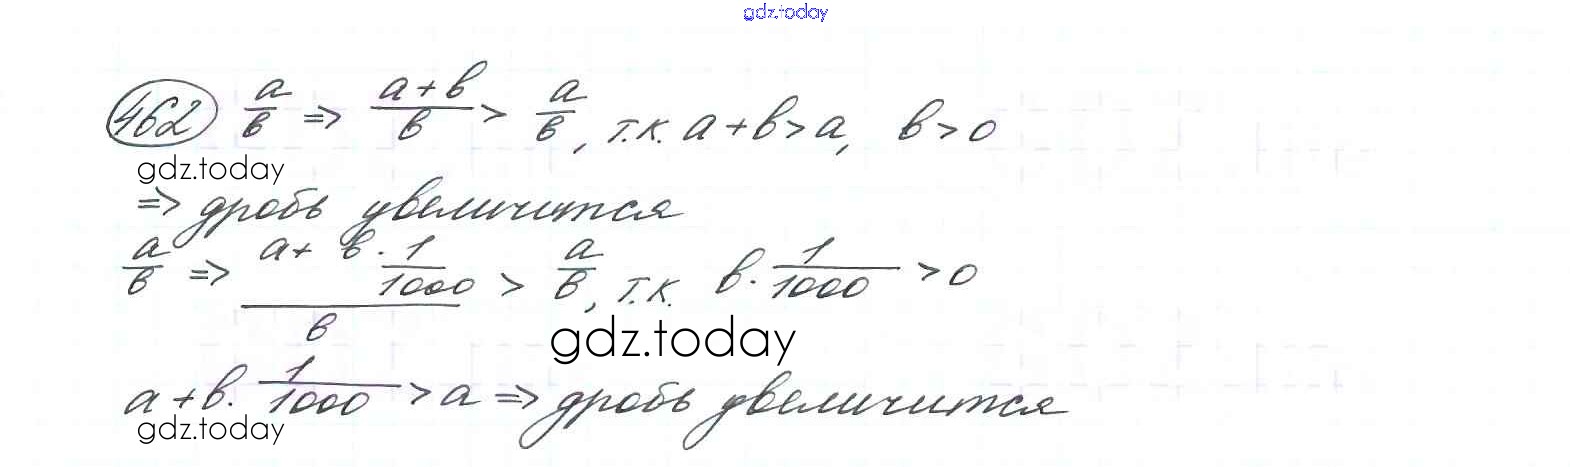 gdz.today
462 a/в => (a+в)/в > a/в, т.к. a+в>a, в>0
gdz.today
=> дробь увеличится
a/в => (a+ в·1/1000)/в > a/в, т.к. в·1/1000 >0
gdz.today
a+в·1/1000 >a => дробь увеличится
gdz.today